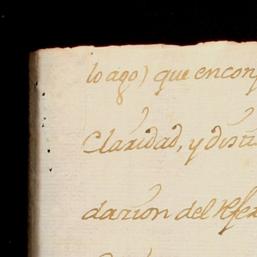 lo ago) que encon
Claridad, y disti
darion del Refe